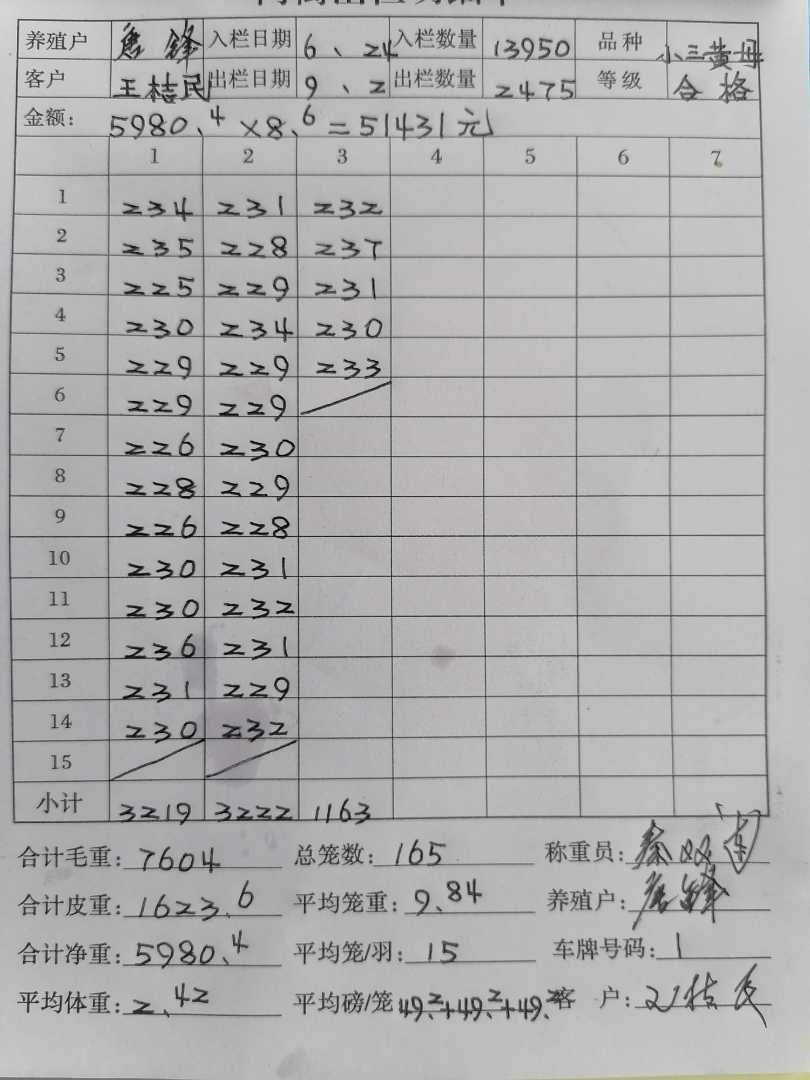 养殖户 唐锋 入栏日期 6、24 入栏数量 13950 品种 小三黄母
客户 王桔民 出栏日期 9、2 出栏数量 2475 等级 合格
金额: 5980.4×8.6=51431元
1 2 3 4 5 6 7
1 234 231 232
2 235 228 237
3 225 229 231
4 230 234 230
5 229 229 233
6 229 229
7 226 230
8 228 229
9 226 228
10 230 231
11 230 232
12 236 231
13 231 229
14 230 232
15
小计 3219 3222 1163
合计毛重: 7604 总笼数: 165 称重员:
合计皮重: 1623.6 平均笼重: 9.84 养殖户: 唐锋
合计净重: 5980.4 平均笼/羽: 15 车牌号码: 1
平均体重: 2.42 平均磅/笼 49.2+49.2+49.2 客户: 王桔民